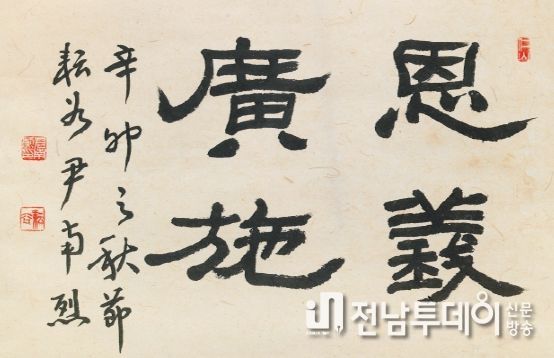 恩義
廣施
辛卯之秋節
耘谷尹南烈
전남투데이 신문방송